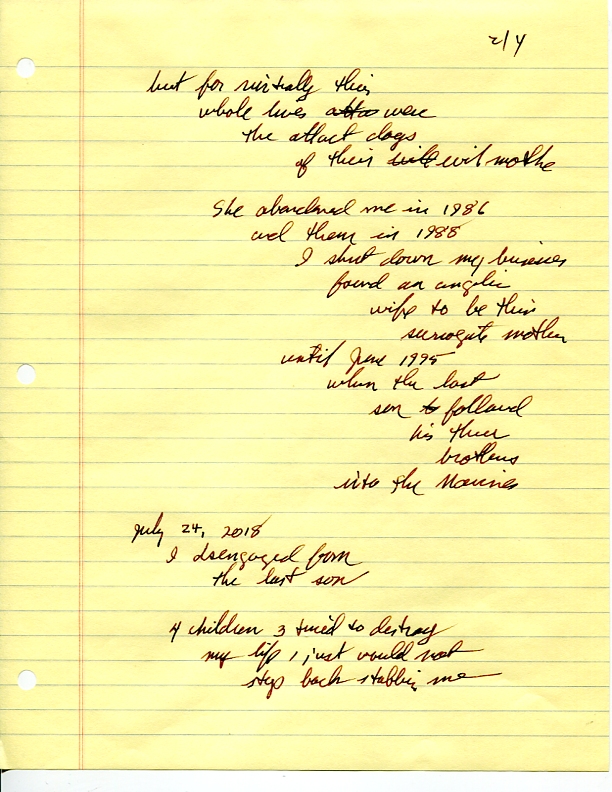 2/4
but for virtually their
whole lives were
the attact dogs
of their evil mothe
She abandoned me in 1986
and them in 1988
I shut down my business
found an angelic
wife to be their
surrogate mother
until June 1995
when the last
son followed
his three
brothers
into the Marines
July 24, 2018
I dsengaged from
the last son
4 children 3 tried to destroy
my life 1 just would not
stop back stabbing me